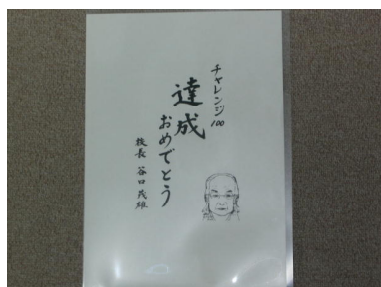 チャレンジ100
達成
おめでとう
校長 谷口茂雄